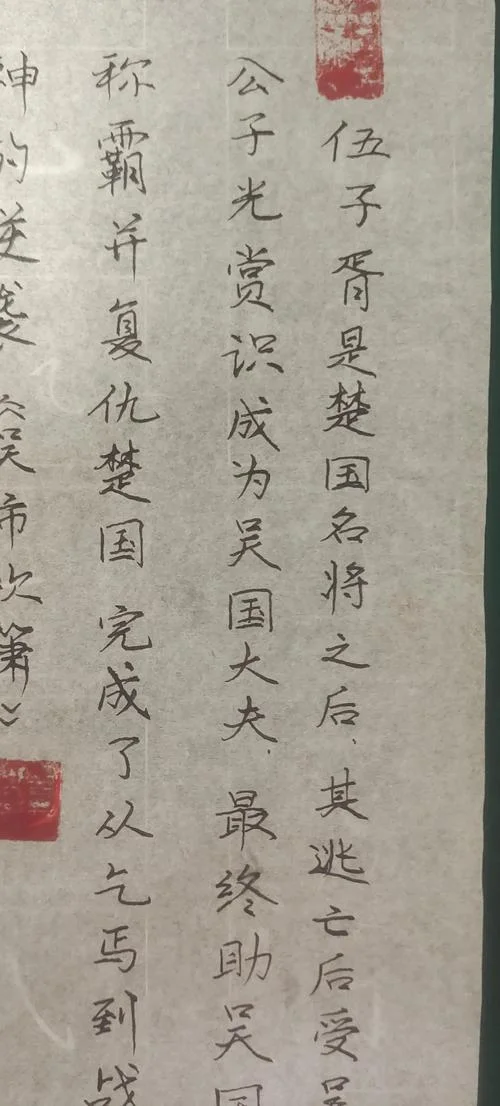 伍子胥是楚国名将之后、其逃亡后受吴
公子光赏识成为吴国大夫、最终助吴国
称霸并复仇楚国 完成了从乞焉到战
神的逆袭《吴市吹箫》